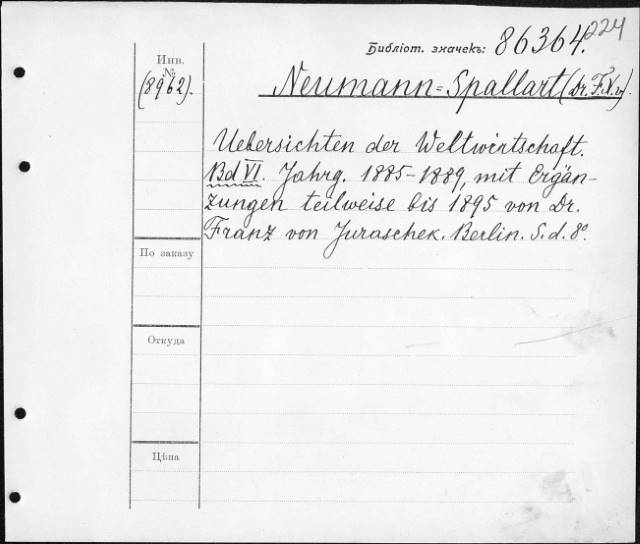 Библіот. значекъ: 86364. 224
Инв.
№
(8962).
Neumann=Spallart (Dr. F. X. v).
Uebersichten der Weltwirtschaft.
Bd VI. Jahrg. 1885-1889, mit Ergän-
zungen teilweise bis 1895 von Dr.
Franz von Juraschek. Berlin. S. d. 8º.
По заказу
Откуда
Цѣна